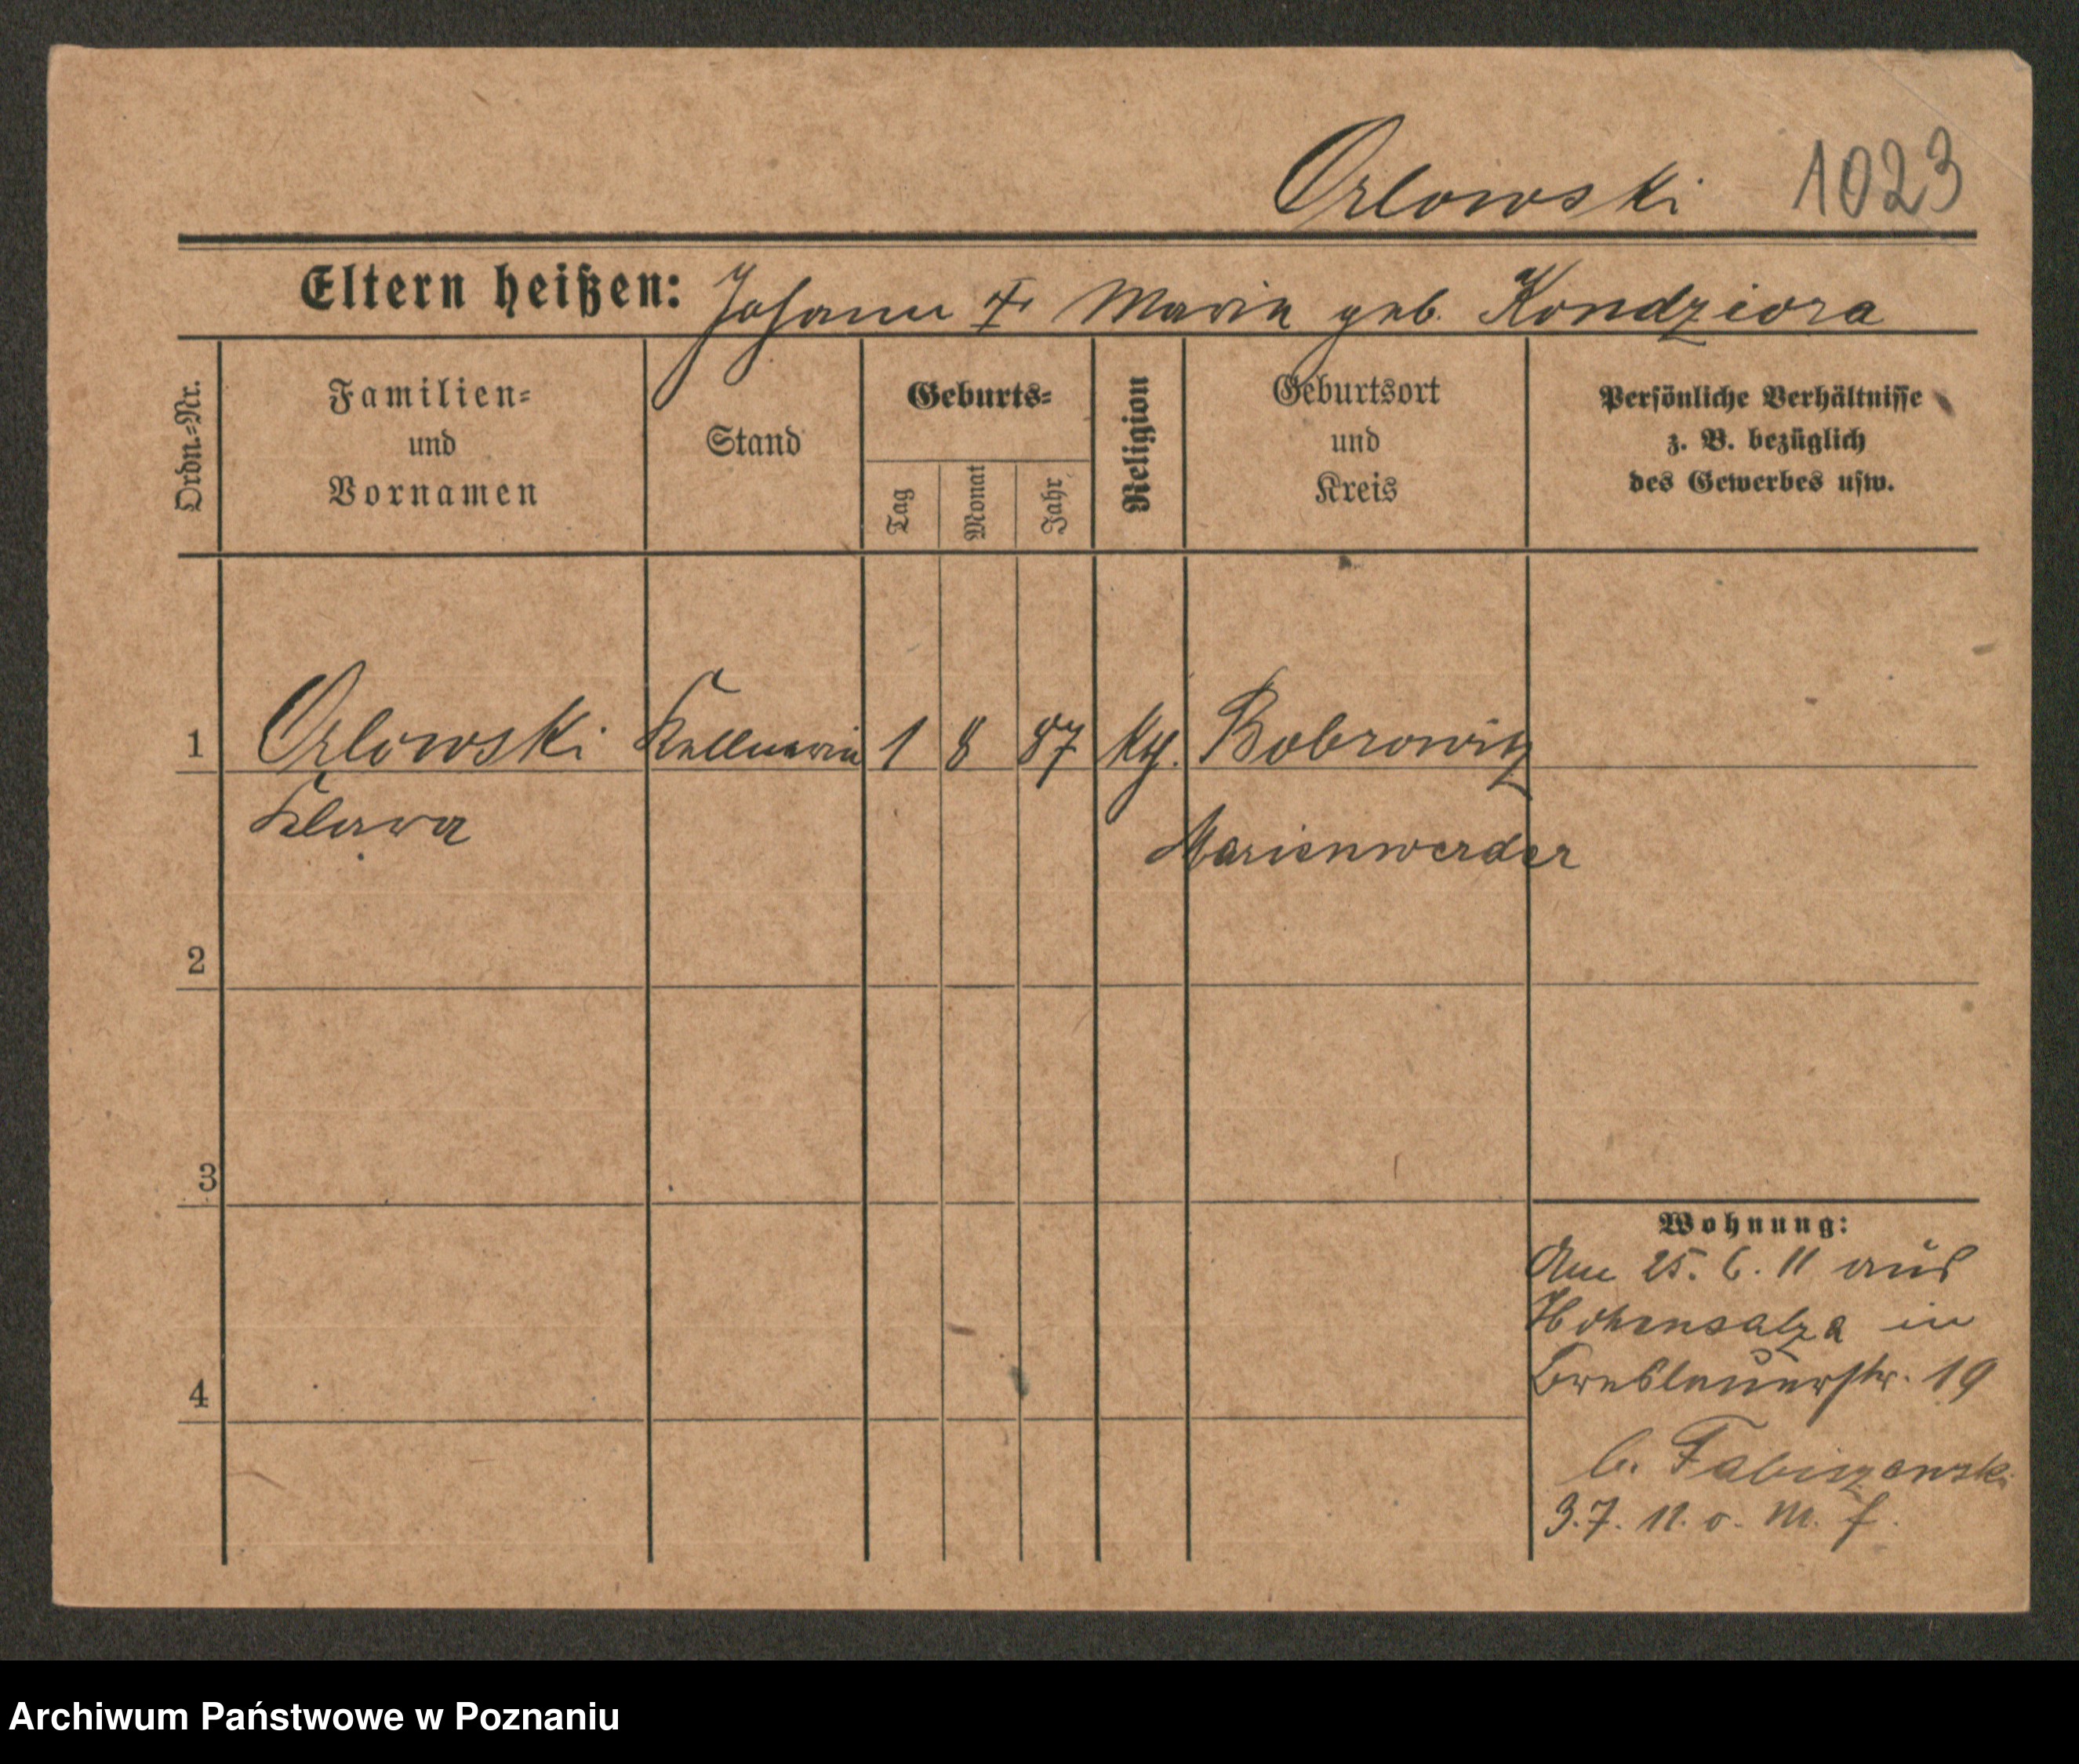 Orlowski 1023
Eltern heißen: Johann u. Maria geb. Kondziora
Ordn.=Nr.
Familien=
und
Vornamen
Stand
Geburts=
Tag
Monat
Jahr
Religion
Geburtsort
und
Kreis
Persönliche Verhältnisse
z. B. bezüglich
des Gewerbes usw.
1 Orlowski Kellnerin 1 8 87 kth. Bobrowitz
Klara
Marienwerder
2
3
Wohnung:
Am 25. 6. 11 aus
Hohensalza in
Breslauerstr. 19
4
b. Fabiszewski
3. 7. 11. o. M. f.
Archiwum Państwowe w Poznaniu